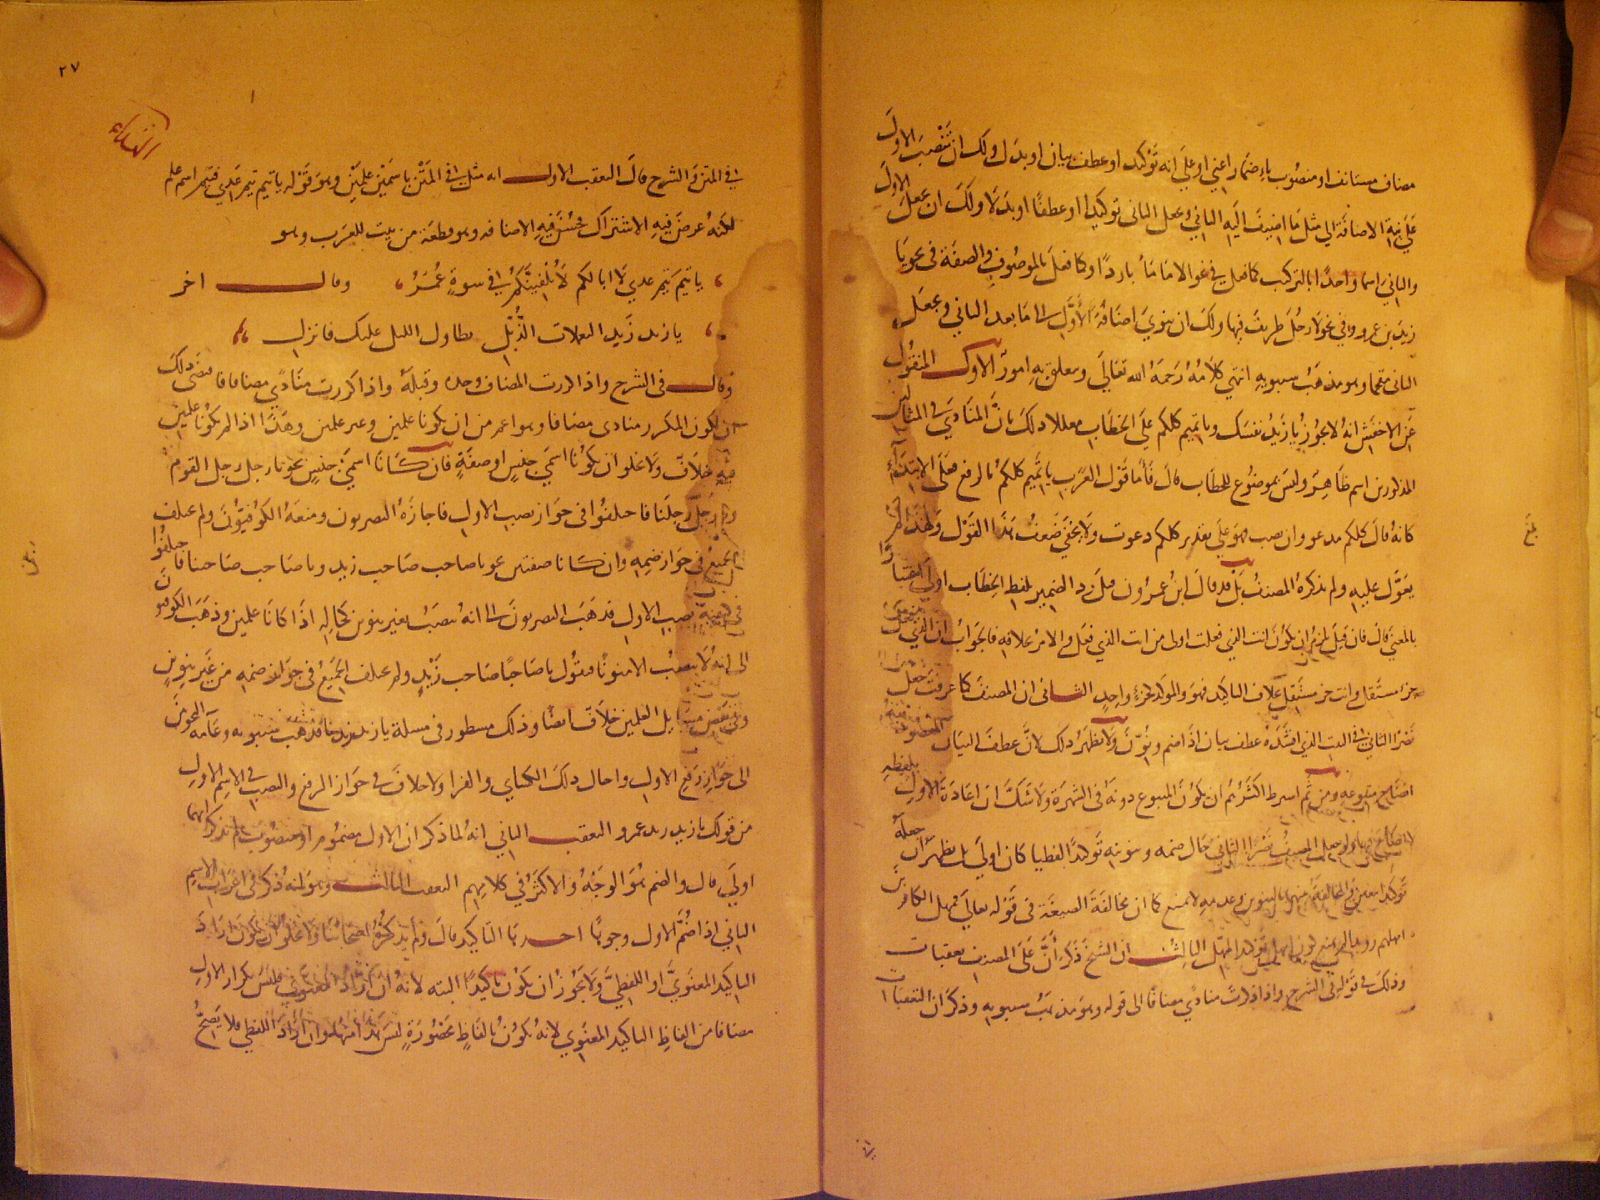 مضاف مستانف او منصوب باضمار اعني او على انه توكيد او عطف بيان او بدل ولك ان تنصب الاول
على نية الاضافة الى مثل ما اضيف اليه الثاني وتجعل الثاني توكيدا او عطفا او بدلا ولك ان تجعل الاول
والثاني اسما واحدا بالتركيب كما فعل في نحو الا ماء ماء باردا وكما فعل بالموصوف والصفة في نحو يا
زيد بن عمرو وفي نحو لا رجل ظريف فيها ولك ان تنوي اضافة الاول الى ما بعد الثاني وتجعل
الثاني مقحما وهو مذهب سيبويه انتهى كلامه رحمه الله تعالى ويتعلق به امور الاول المنقول
عن الاخفش انه لا يجوز يا زيد نفسك ويا تميم كلكم على الخطاب معللا ذلك بان المنادى في المثالين
المذكورين اسم ظاهر وليس بموضوع للخطاب قال فاما قول العرب يا تميم كلكم بالرفع فعلى الابتداء
كانه قال كلكم مدعو وان نصب فهو على تقدير كلكم دعوت ولا يخفى ضعف هذا القول ولهذا لم
يعول عليه ولم يذكره المصنف بل قد قال ابن عمرون قيل رد الضمير بلفظ الخطاب اولى
بالمعنى قال فان قيل
جزء مستقل وانت جزء مستقل بخلاف التاكيد فهو والمؤكد كجزء واحد الثاني ان المصنف كما عرفت جعل
نصرا الثاني في البيت الذي انشده عطف بيان اذا ضم ونون ولا يظهر ذلك لان عطف البيان
ايضاح متبوعه ومن ثم اشترط اكثرهم ان يكون المتبوع دونه في الشهرة ولا شك ان اعادة الاول بلفظه
لا ايضاح فيها ولو جعل المصنف نصرا الثاني حال ضمه وتنوينه توكيدا لفظيا كان اولى
في قوله تعالى فمهل الكافرين
امهلهم رويدا الثالث ان الشيخ ذكر ان على المصنف تعقبات
وذلك في قوله في الشرح واذا منادى مضافا الى قوله وهو مذهب سيبويه وذكر ان التعقبات
٢٧
النداء
في المتن والشرح قال التعقب الاول انه مثل في المتن باسمين علمين وهو قوله يا تيم تيم عدي فتيم اسم علم
لكنه عرض فيه الاشتراك فحسن فيه الاضافة وهو قطعة من بيت للعرب وهو
يا تيم تيم عدي لا ابا لكم لا يلفينكم في سوءة عمر وقال اخر
يا زيد زيد اليعملات الذبل تطاول الليل عليك فانزل
وقال في الشرح واذا كررت المضاف وحده وقبله واذا كررت منادى مضافا فاقتضى ذلك
ان يكون المكرر منادى مضافا وهو اعم من ان يكونا علمين وغير علمين وهذا اذا لم يكونا علمين
فيه خلاف ولا يخلو ان يكونا اسمي جنس او صفة فان كانا اسمي جنس نحو يا رجل رجل القوم
فاختلفوا في جواز نصب الاول فاجازه البصريون ومنعه الكوفيون ولم يختلف
الجميع في جواز ضمه وان كانا صفتين نحو يا صاحب صاحب زيد ويا صاحب صاحبنا فاختلفوا
في نصب الاول فذهب البصريون الى انه ينصب بغير تنوين كحاله اذا كانا علمين وذهب الكوفيون
الى انه لا ينصب الا منونا فيقول يا صاحبا صاحب زيد ولم يختلف الجميع في جواز ضمه من غير تنوين
وفي بعض مسائل العلمين خلاف ايضا وذلك مسطور في مسئلة يا زيد زيدنا فذهب سيبويه وعامة النحويين
الى جواز رفع الاول واحال ذلك الكسائي والفرا ولا خلاف في جواز الرفع والنصب في الاسم الاول
من قولك يا زيد زيد عمرو التعقب الثاني انه لما ذكر ان الاول مضموم او منصوب لم يذكر ايهما
اولى قال والضم هو الوجه والاكثر في كلامهم التعقب الثالث وهو انه ذكر في اعراب الاسم
الثاني اذا ضم الاول وجوها احدها التاكيد قال ولم يذكره اصحابنا ولا يخلو ان يكون اراد
التاكيد المعنوي او اللفظي ولا يجوز ان يكون تاكيدا البتة لانه ان اراد المعنوي فليس تكرار الاول
مضافا من الفاظ التاكيد المعنوي لانه يكون بالفاظ محصورة ليس هذا منها وان اراد اللفظي فلا يصح
بلغ